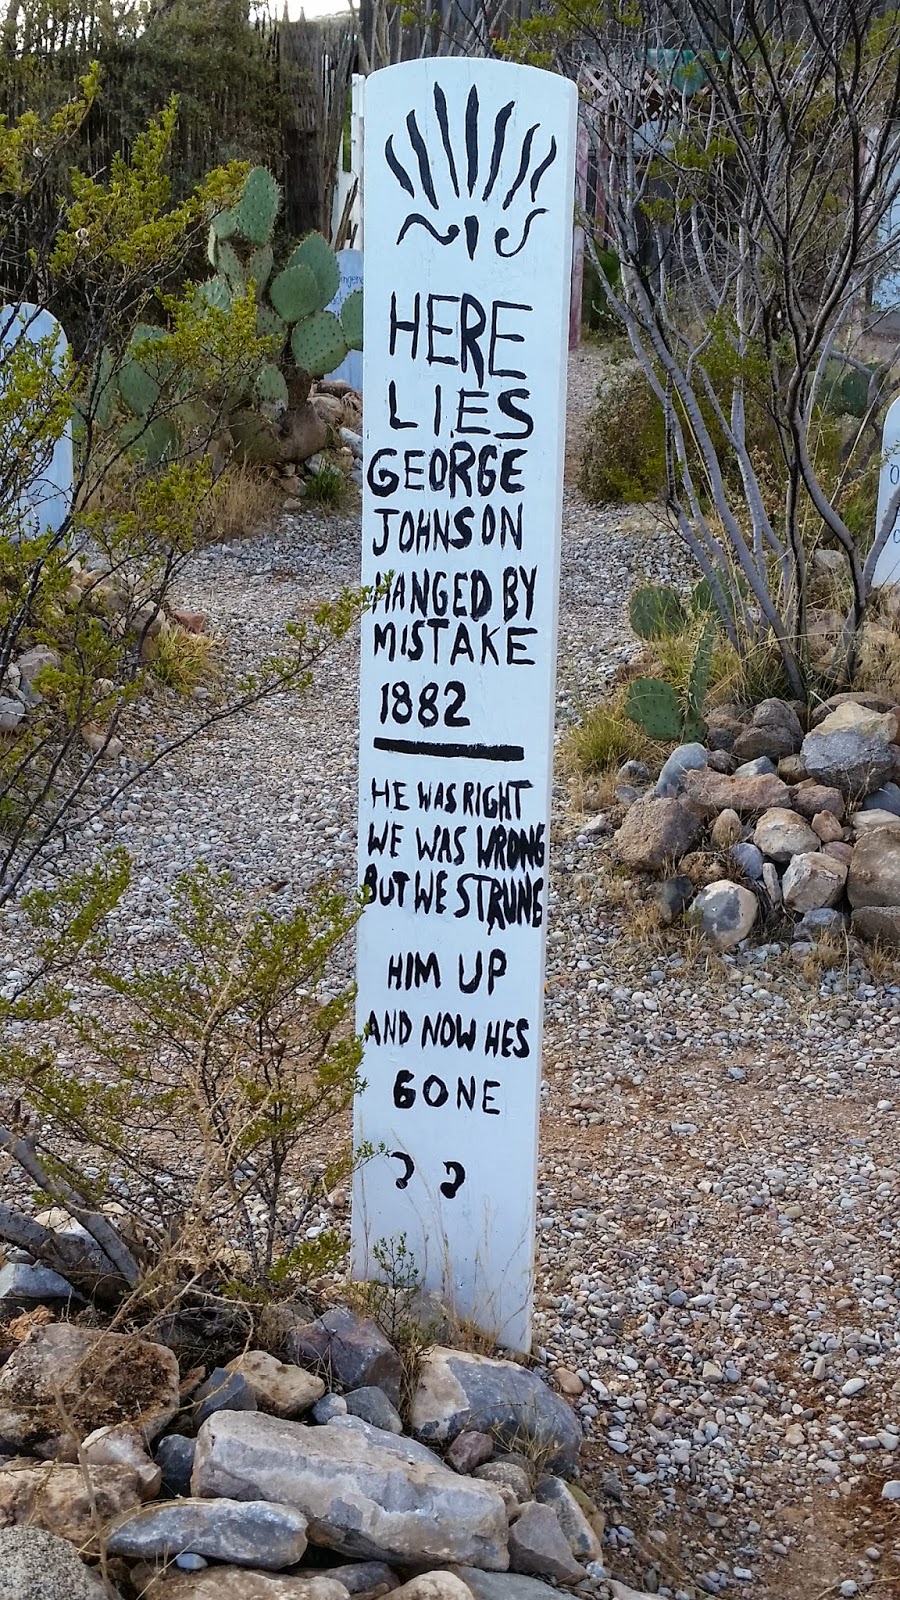 HERE
LIES
GEORGE
JOHNSON
HANGED BY
MISTAKE
1882
HE WAS RIGHT
WE WAS WRONG
BUT WE STRUNG
HIM UP
AND NOW HES
GONE